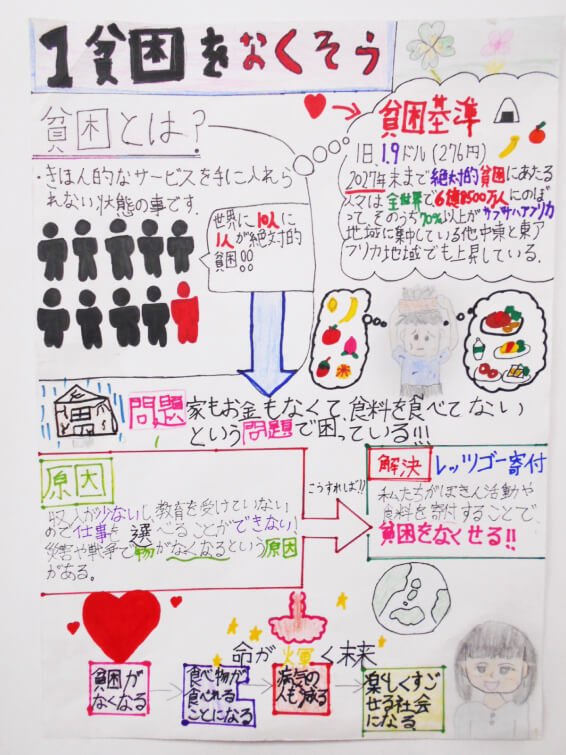 1貧困をなくそう
貧困とは?
・きほん的なサービスを手に入れら
れない状態の事です.
世界に10人に
1人が絶対的
貧困!!
貧困基準
1日、1.9ドル(276円)
2027年末まで絶対的貧困にあたる
人々は全世界で6億8500万人にのぼ
って、そのうち70%以上がサブサハアフリカ
地域に集中している他中東と東ア
フリカ地域でも上昇している.
問題 家もお金もなくて、食料を食べてない
という問題で困っている!!!
原因
収入が少ないし、教育を受けていない
ので仕事を選べることができない!
災害や戦争で物がなくなるという原因
がある。
こうすれば!!
解決 レッツゴー寄付
私たちがぼきん活動や
食料を寄付することで、
貧困をなくせる!!
命が輝く未来
貧困が
なくなる
食べ物が
食べれる
ことになる
病気の
人も減る
楽しくすご
せる社会
になる